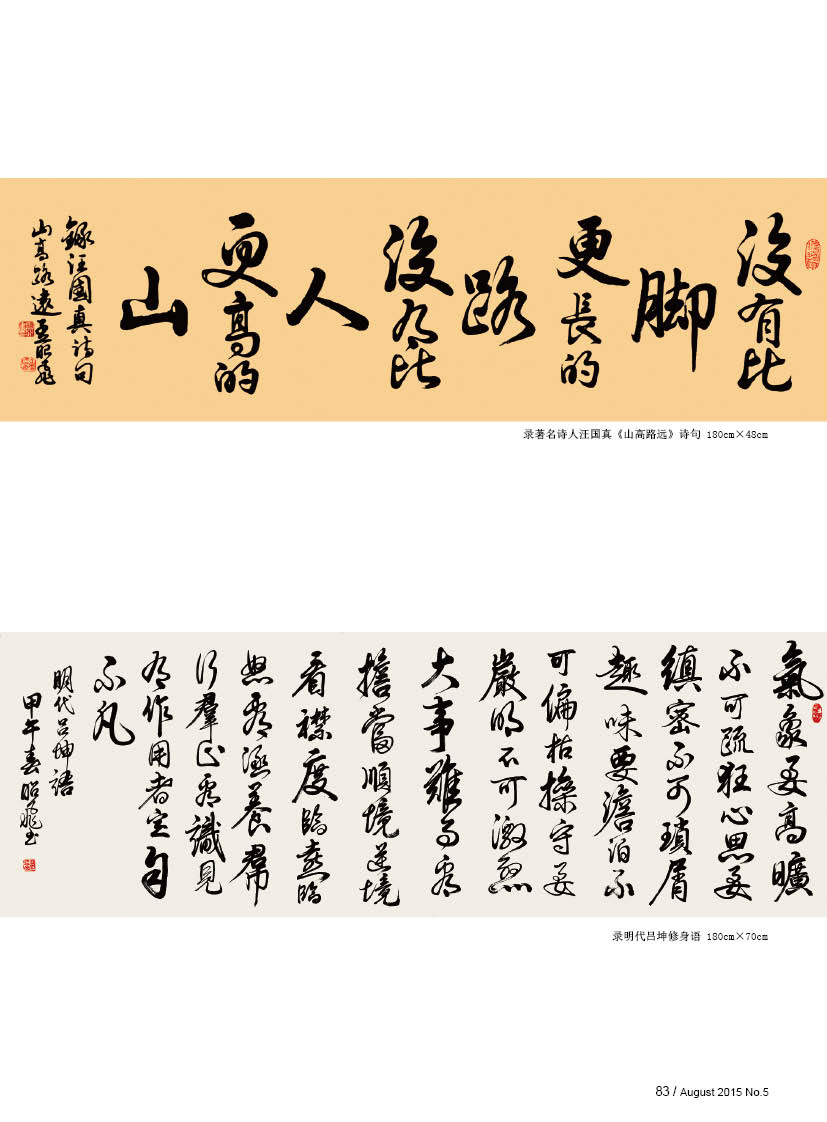 没有比
脚
更長的
路
没有比
人
更高的
山
錄汪國真詩句
山高路遠 昭飛
录著名诗人汪国真《山高路远》诗句 180cm×48cm
氣象要高曠
不可疏狂心思要
縝密不可瑣屑
趣味要澹泊不
可偏枯操守要
嚴明不可激烈
大事難事看
擔當順境逆境
看襟度臨喜臨
怒看涵養羣
行羣止看識見
有作用者定自
不凡
明代吕坤語
甲午春昭飛书
录明代吕坤修身语 180cm×70cm
83 / August 2015 No.5